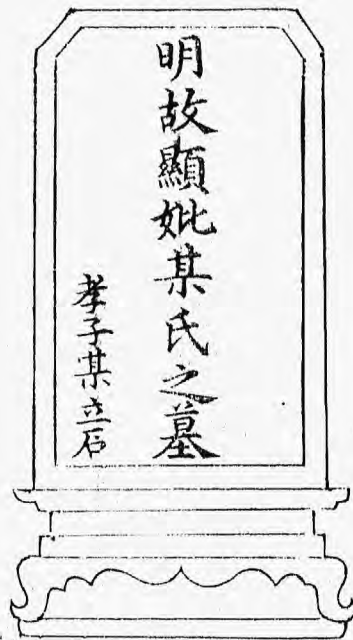 明故顯妣某氏之墓
孝子某立石